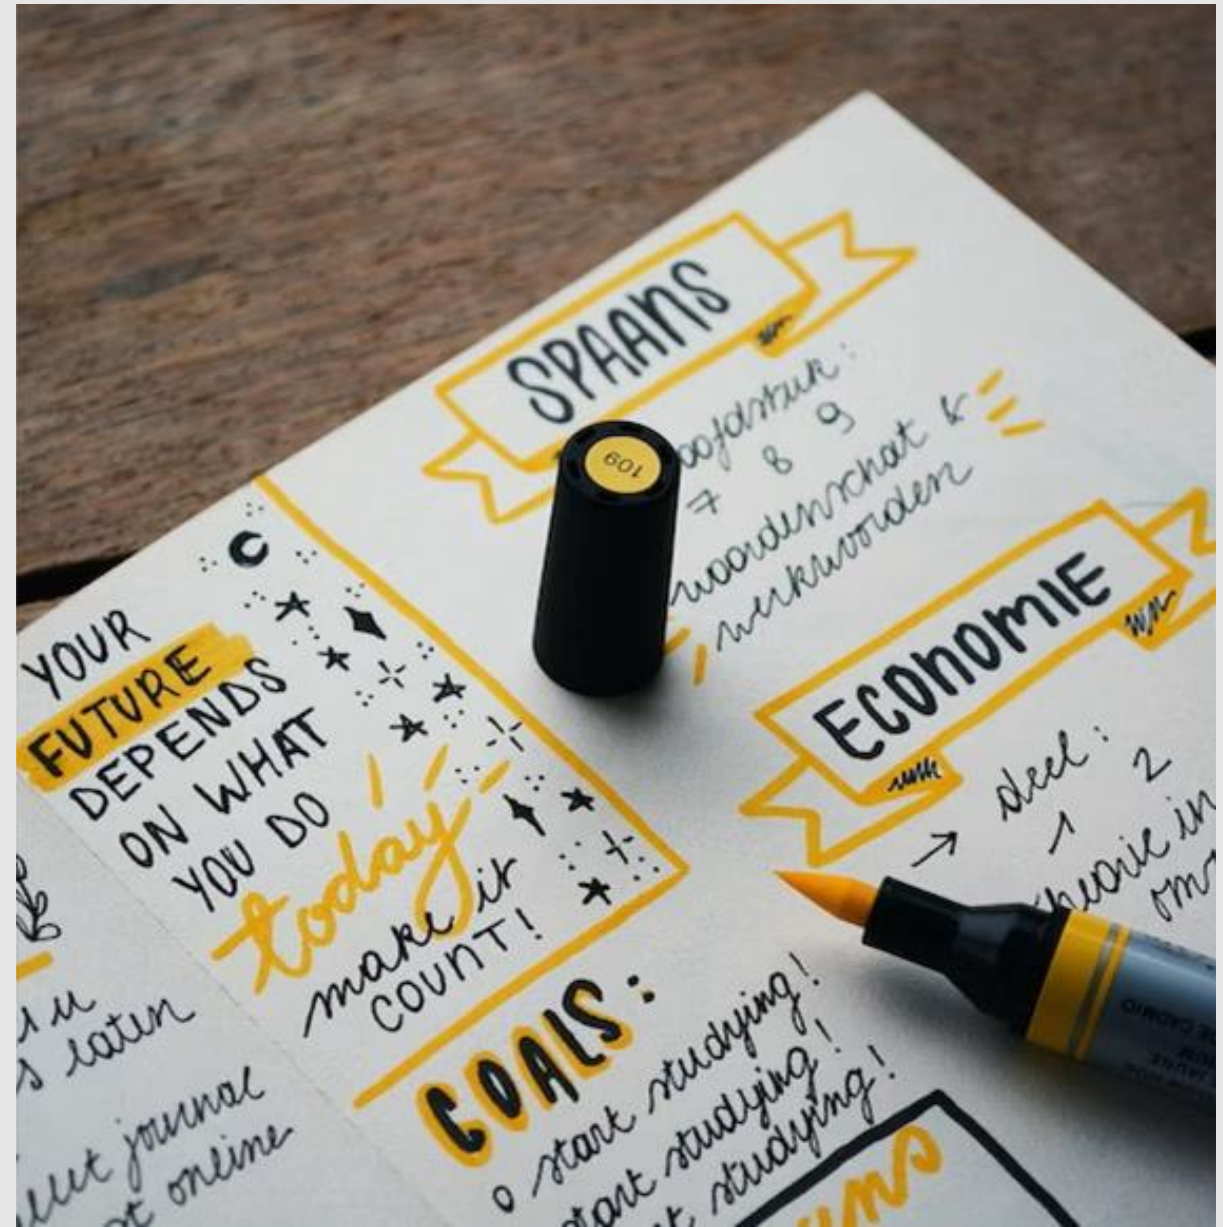 SPAANS
7 8 9
woordenschat &
werkwoorden
ECONOMIE
→ deel:
1 2
in
109
YOUR
FUTURE
DEPENDS
ON WHAT
YOU DO
today
make it
COUNT!
GOALS:
o start studying!
start studying!
studying!
laten
journal
online